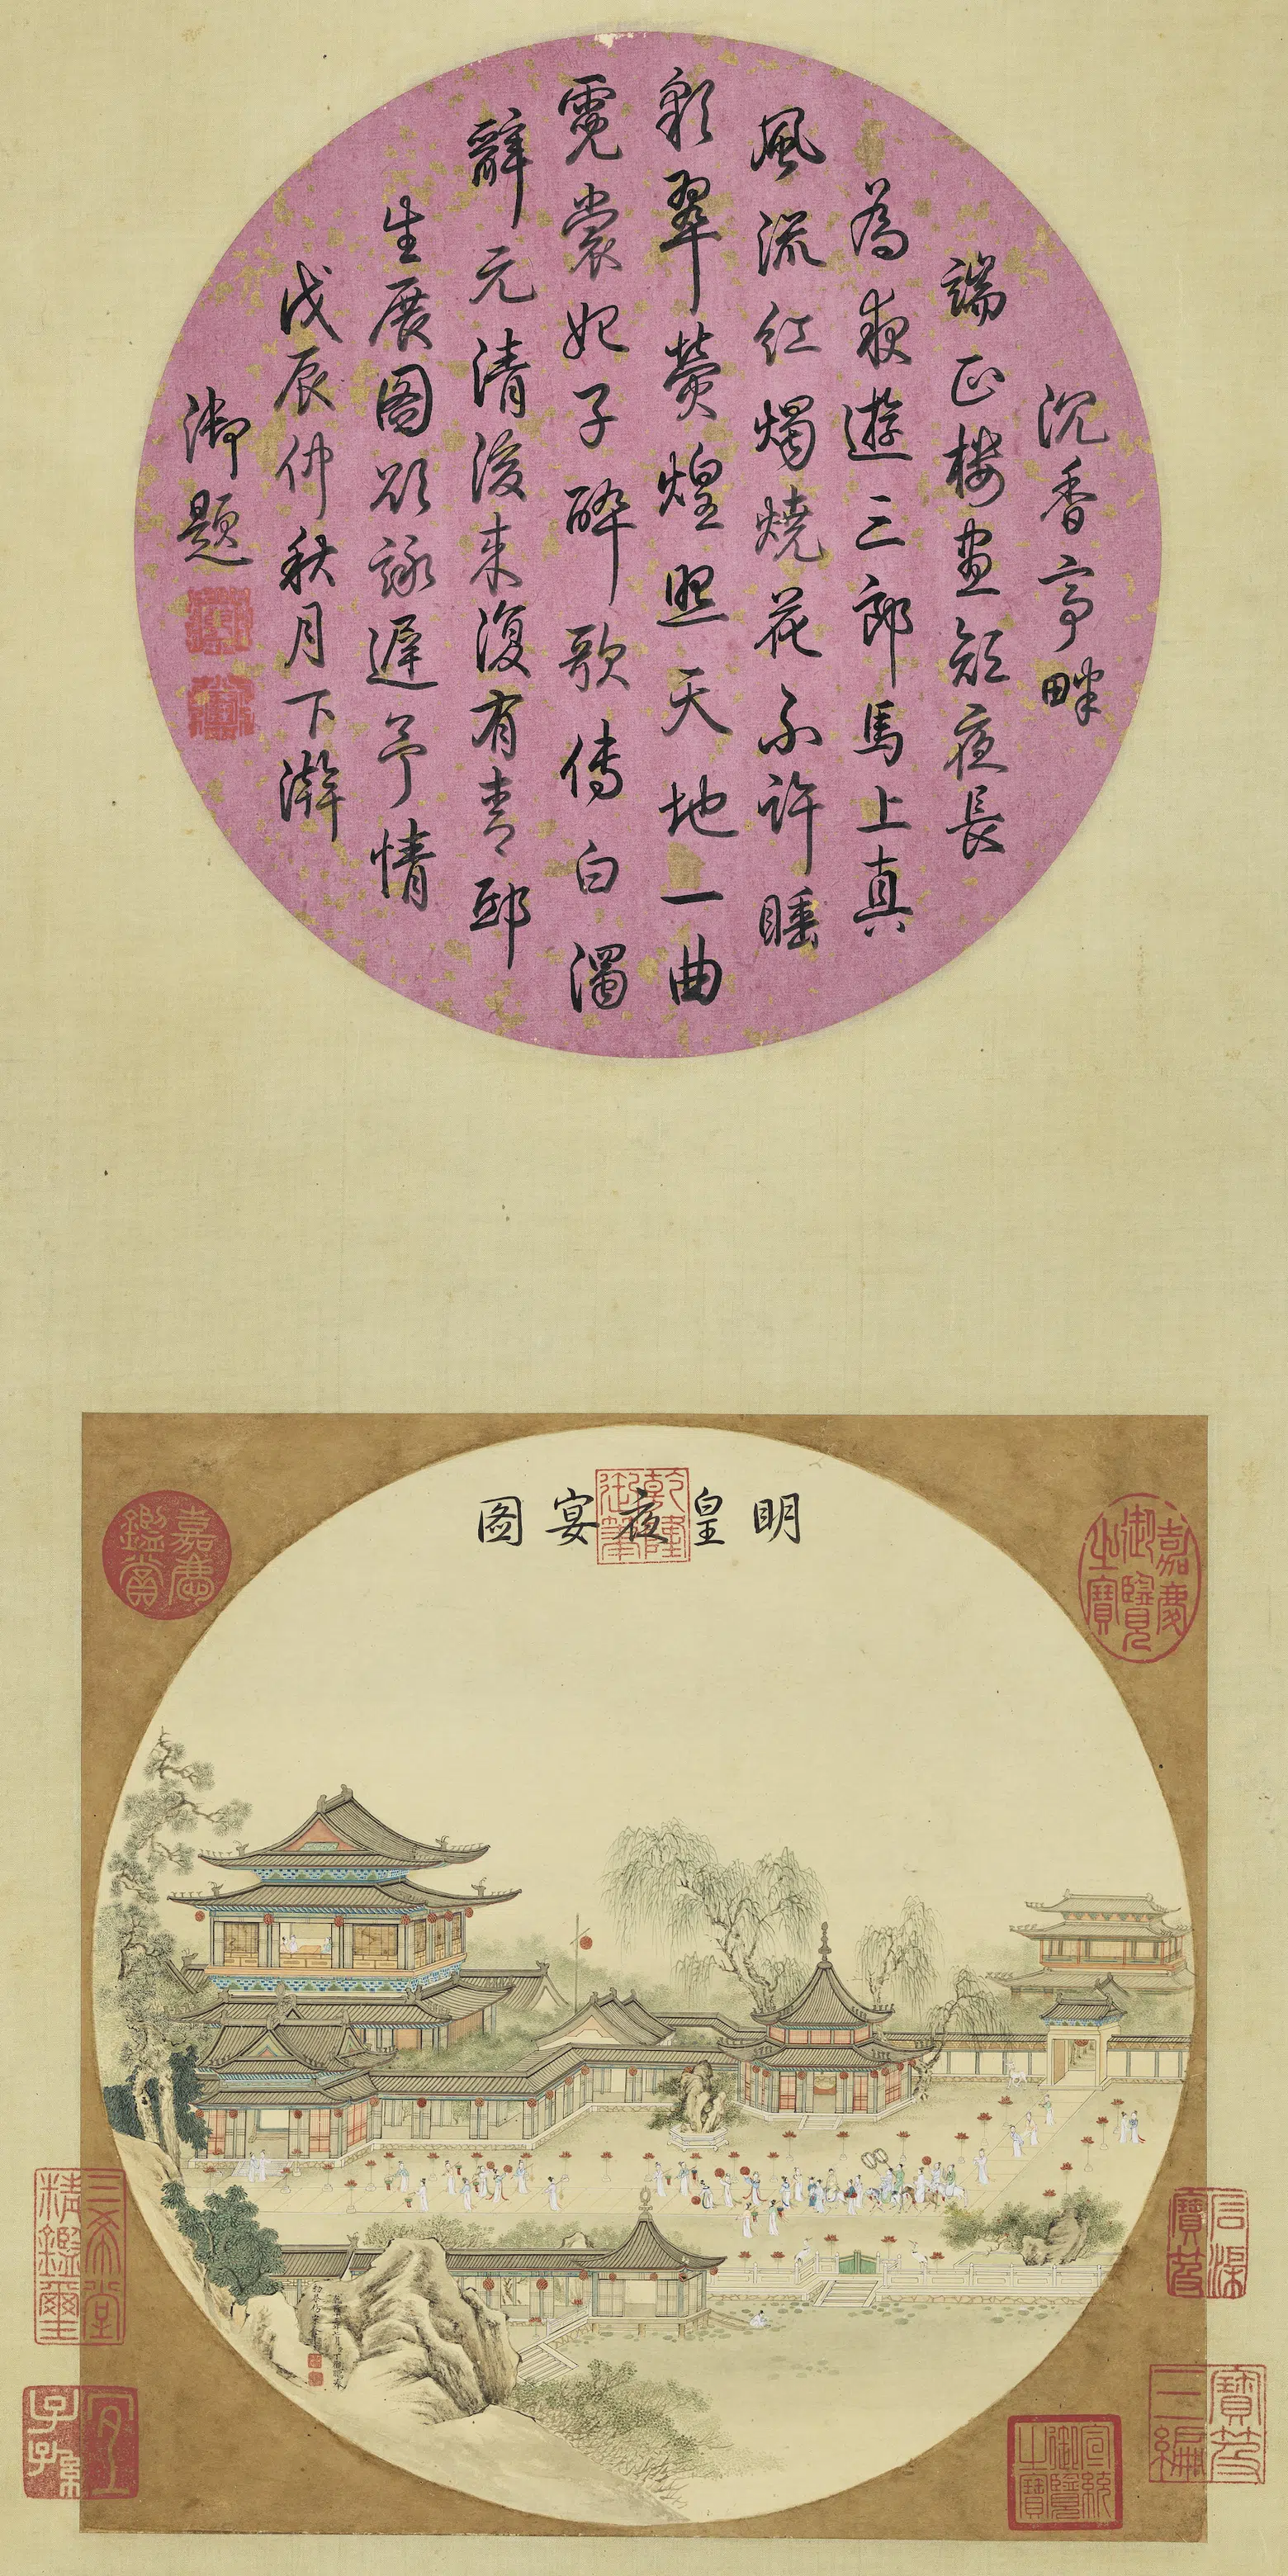 沉香亭畔
端正樓晝短夜長
為夜遊三郎馬上真
風流紅燭燒花不許睡
彩翠熒煌照天地一曲
霓裳妃子醉歌傳白濁
辭元清後來復有青邱
生展圖欲詠遲予情
戊辰仲秋月下澣
御題
明皇夜宴圖
乾隆御筆
嘉慶御覽之寶
嘉慶鑑賞
石渠寶笈
寶笈三編
宣統御覽之寶
三希堂精鑑璽
宜子孫